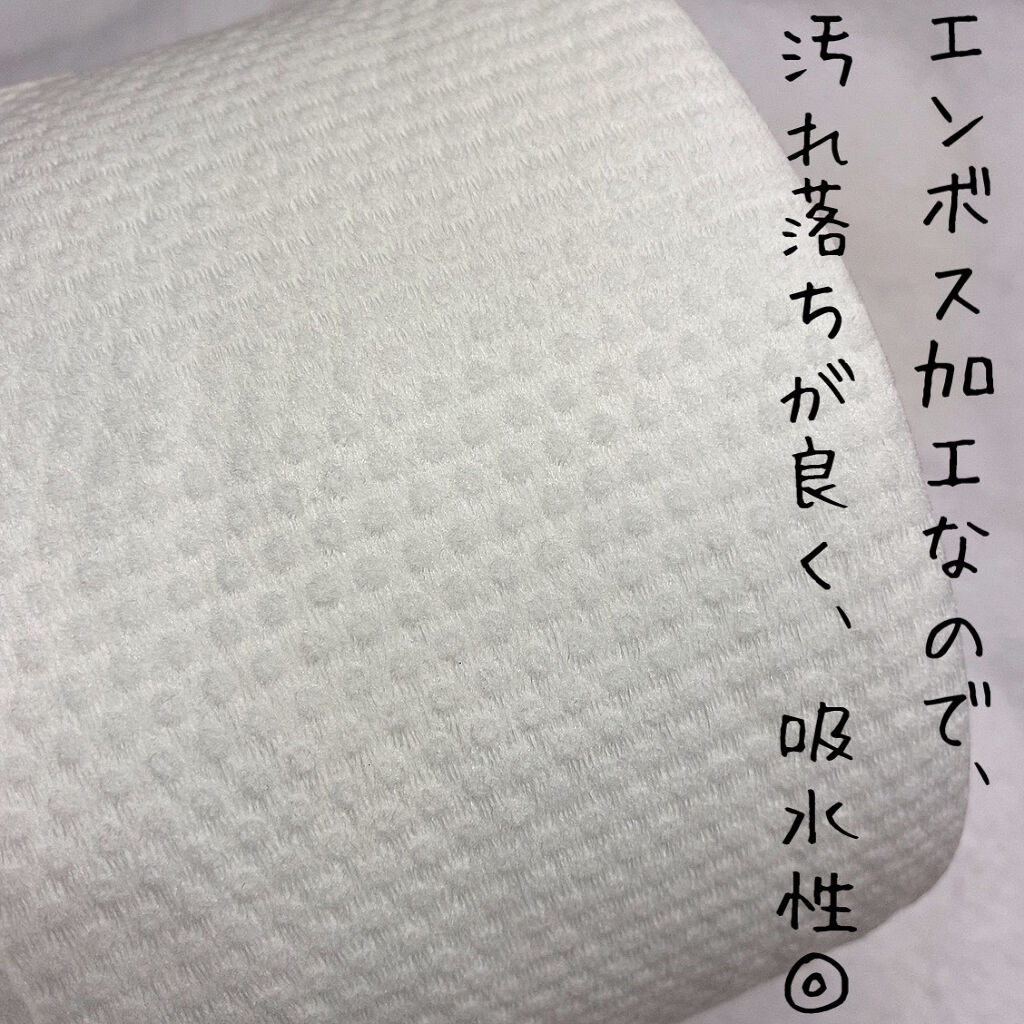 エンボス加工なので、
汚れ落ちが良く、吸水性◎